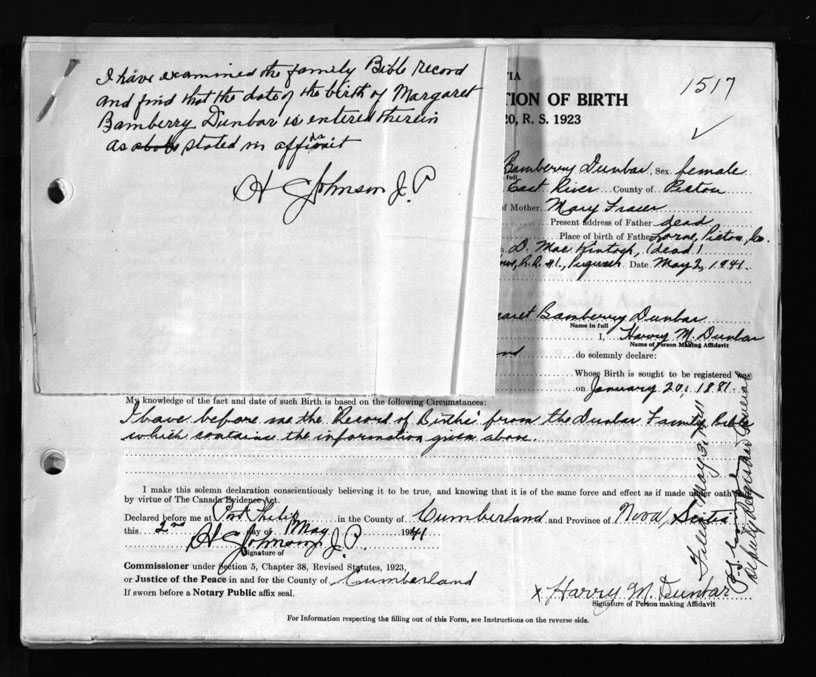 I have examined the family Bible record
and find that the date of the birth of Margaret
Bamberry Dunbar is entered therein
as stated in
H C Johnson J. P
TIA
1517
TION OF BIRTH
20, R. S. 1923
Bamberry Dunbar, Sex female
full
East River County of Pictou
of Mother Mary Fraser
Present address of Father dead
Place of birth of Father Lorne, Pictou, Co.
D. MacKintosh, (dead)
R.R. #1, Date May 2, 1941.
aret Bamberry Dunbar
Name in full
I, Harry M. Dunbar
Name of Person Making Affidavit
do solemnly declare:
Whose Birth is sought to be registered was
on January 20, 1881.
My knowledge of the fact and date of such Birth is based on the following Circumstances:
I have before me the "Record of Births" from the Dunbar Family Bible
which contains the information given above.
I make this solemn declaration conscientiously believing it to be true, and knowing that it is of the same force and effect as if made under oath
by virtue of The Canada Evidence Act.
Declared before me at Port Philip in the County of Cumberland and Province of Nova Scotia
this 2nd day of May 1941
H C Johnson J. P.
Signature of
Commissioner under Section 5, Chapter 38, Revised Statutes, 1923,
or Justice of the Peace in and for the County of Cumberland
If sworn before a Notary Public affix seal.
x Harry M. Dunbar
Signature of Person making Affidavit
For Information respecting the filling out of this Form, see Instructions on the reverse side.
Filed May
Deputy Registrar General